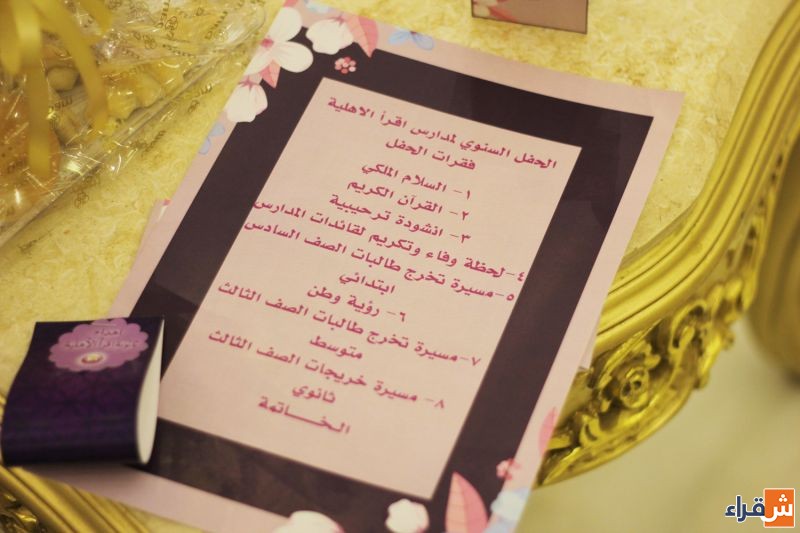 الحفل السنوي لمدارس اقرأ الاهلية
فقرات الحفل
١- السلام الملكي
٢- القرآن الكريم
٣- انشودة ترحيبية
٤- لحظة وفاء وتكريم لقائدات المدارس
٥- مسيرة تخرج طالبات الصف السادس
ابتدائي
٦- رؤية وطن
٧- مسيرة تخرج طالبات الصف الثالث
متوسط
٨- مسيرة خريجات الصف الثالث
ثانوي
الخـــاتمة
شقراء